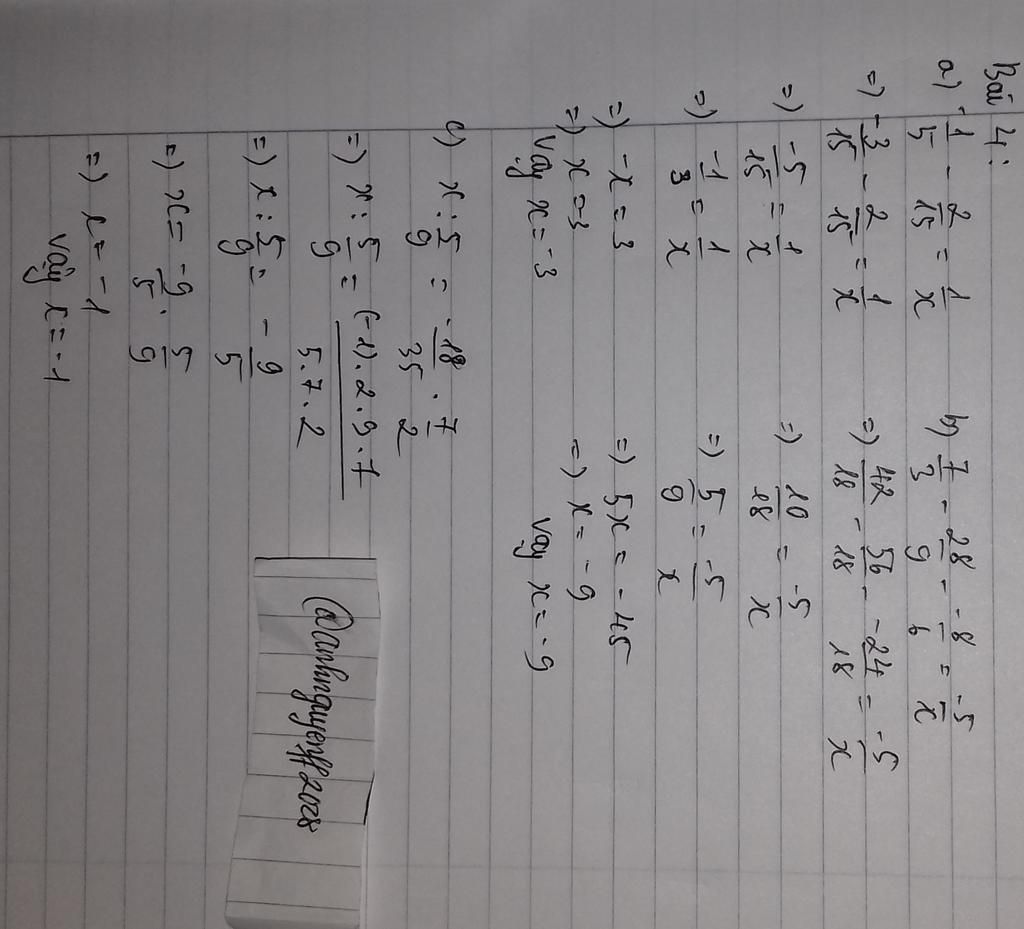 Bài 4:
a) -1/5 - 2/15 = 1/x
=) -3/15 - 2/15 = 1/x
=) -5/15 = 1/x
=) -1/3 = 1/x
=) -x = 3
=) x = -3
Vậy x = -3
b) 7/3 - 28/9 - -8/6 = -5/x
=) 42/18 - 56/18 - -24/18 = -5/x
=) 10/18 = -5/x
=) 5/9 = -5/x
=) 5x = -45
=) x = -9
Vậy x = -9
c) x : 5/9 = -18/35 . 7/2
=) x : 5/9 = (-1).2.9.7/5.7.2
=) x : 5/9 = -9/5
=) x = -9/5 . 5/9
=) x = -1
Vậy x = -1
@anhnguyenff2028